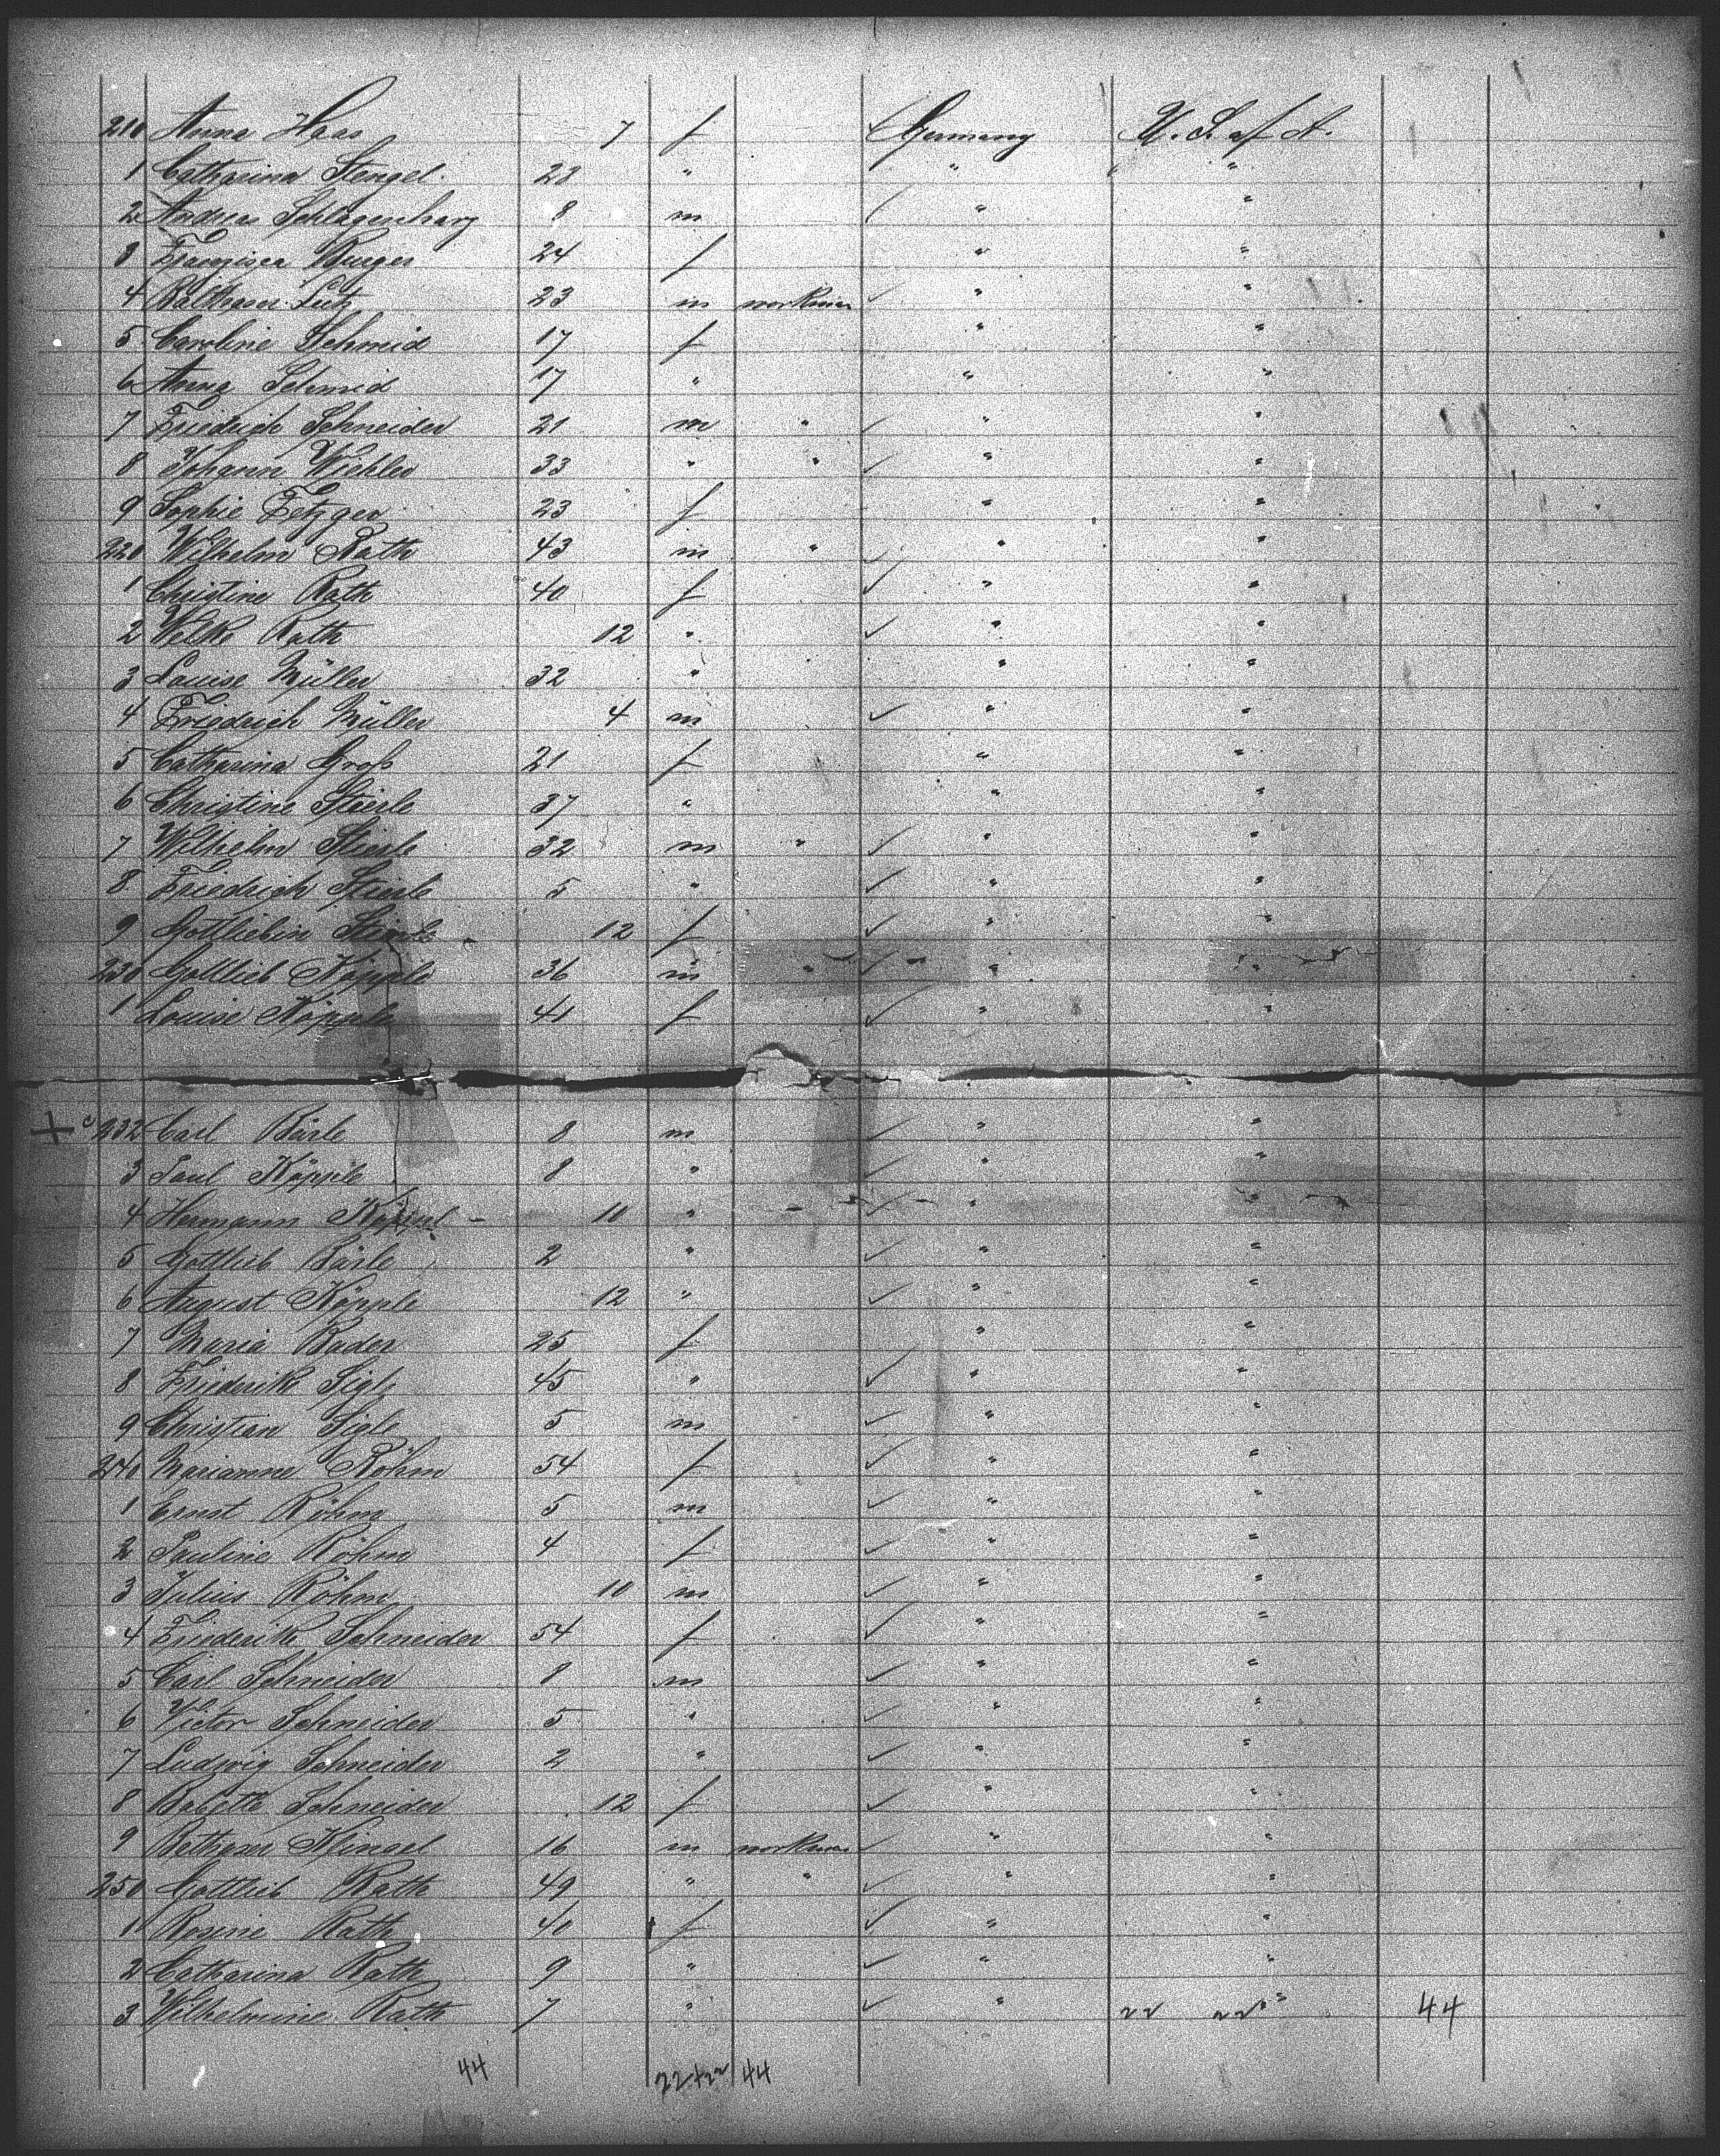 210 Anna Haas 7 f Germany U. S. of A.
1 Catharina Stengel 28 " " "
2 Andreas Schlagenharg 8 m " "
3 Franzisca Burger 24 f " "
4 Balthasar Lutz 23 m workman " "
5 Caroline Schmid 17 f " "
6 Anna Schmid 17 " " "
7 Friedrich Schneider 21 m " " "
8 Johann Wiehler 33 " " " "
9 Sophie Fetzger 23 f " "
220 Wilhelm Rath 43 m " " "
1 Christine Rath 40 f " "
2 Rath 12 " " "
3 Louise Müller 32 " " "
4 Friedrich Müller 4 m " "
5 Catharina Groß 21 f " "
6 Christine Stierle 37 " " "
7 Wilhelm Stierle 32 m " " "
8 Friedrich Stierle 5 " " "
9 Gottliebin Stierle 12 f " "
230 Gottlieb Köpple 36 m " " "
1 Louise Köpple 41 f " "
232 Carl Bärle 8 m " "
3 Paul Köpple 8 " " "
4 Hermann Köppel 10 " " "
5 Gottlieb Bärle 2 " " "
6 August Köpple 12 " " "
7 Maria Bader 25 f " "
8 Friederike Sigle 45 " " "
9 Christian Sigle 5 m " "
240 Marianne Röhm 54 f " "
1 Ernst Röhm 5 m " "
2 Pauline Röhm 4 f " "
3 Julius Röhm 10 m " "
4 Friederike Schneider 54 f " "
5 Carl Schneider 8 m " "
6 Victor Schneider 5 " " "
7 Ludwig Schneider 2 " " "
8 Babette Schneider 12 f " "
9 Klingel 16 m workman " "
250 Gottlieb Rath 49 " " " "
1 Rosine Rath 40 f " "
2 Catharina Rath 9 " " "
3 Wilhelmine Rath 7 " " 22 22 " 44
44 22+22 44